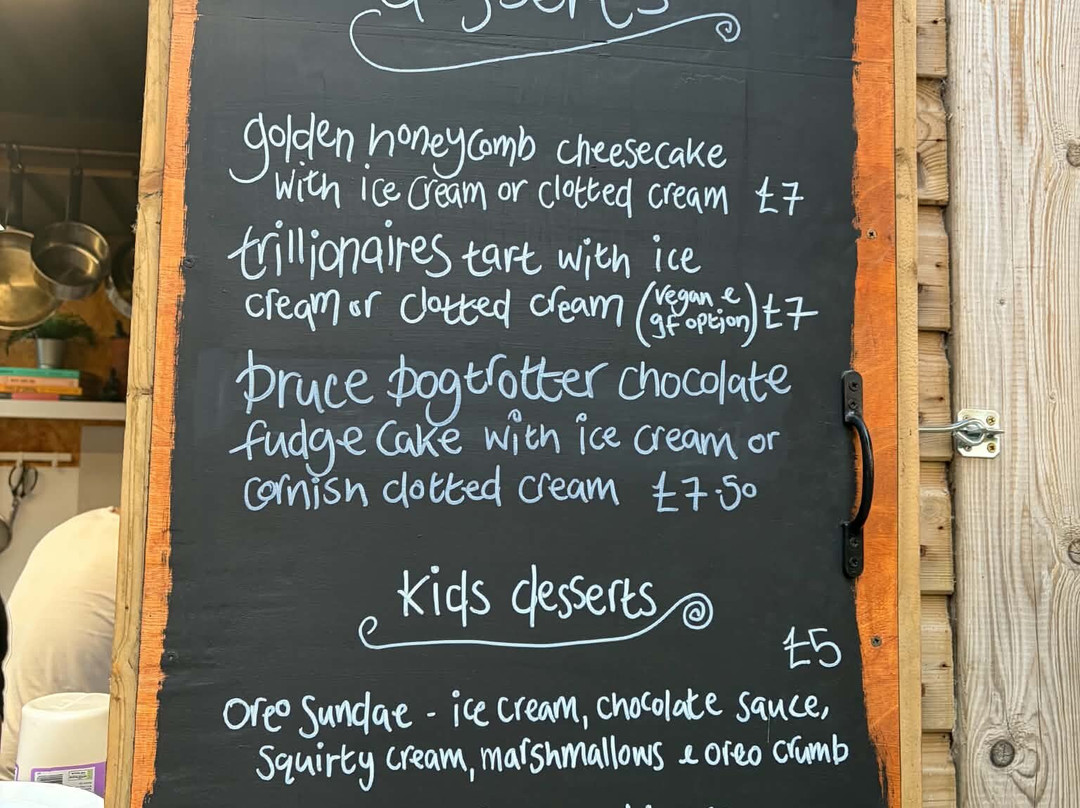 desserts
golden honeycomb cheesecake
with ice cream or clotted cream £7
trillionaires tart with ice
cream or clotted cream (vegan &
gf option) £7
bruce bogtrotter chocolate
fudge cake with ice cream or
cornish clotted cream £7.50
Kids desserts
£5
Oreo Sundae - ice cream, chocolate sauce,
Squirty cream, marshmallows & oreo crumb